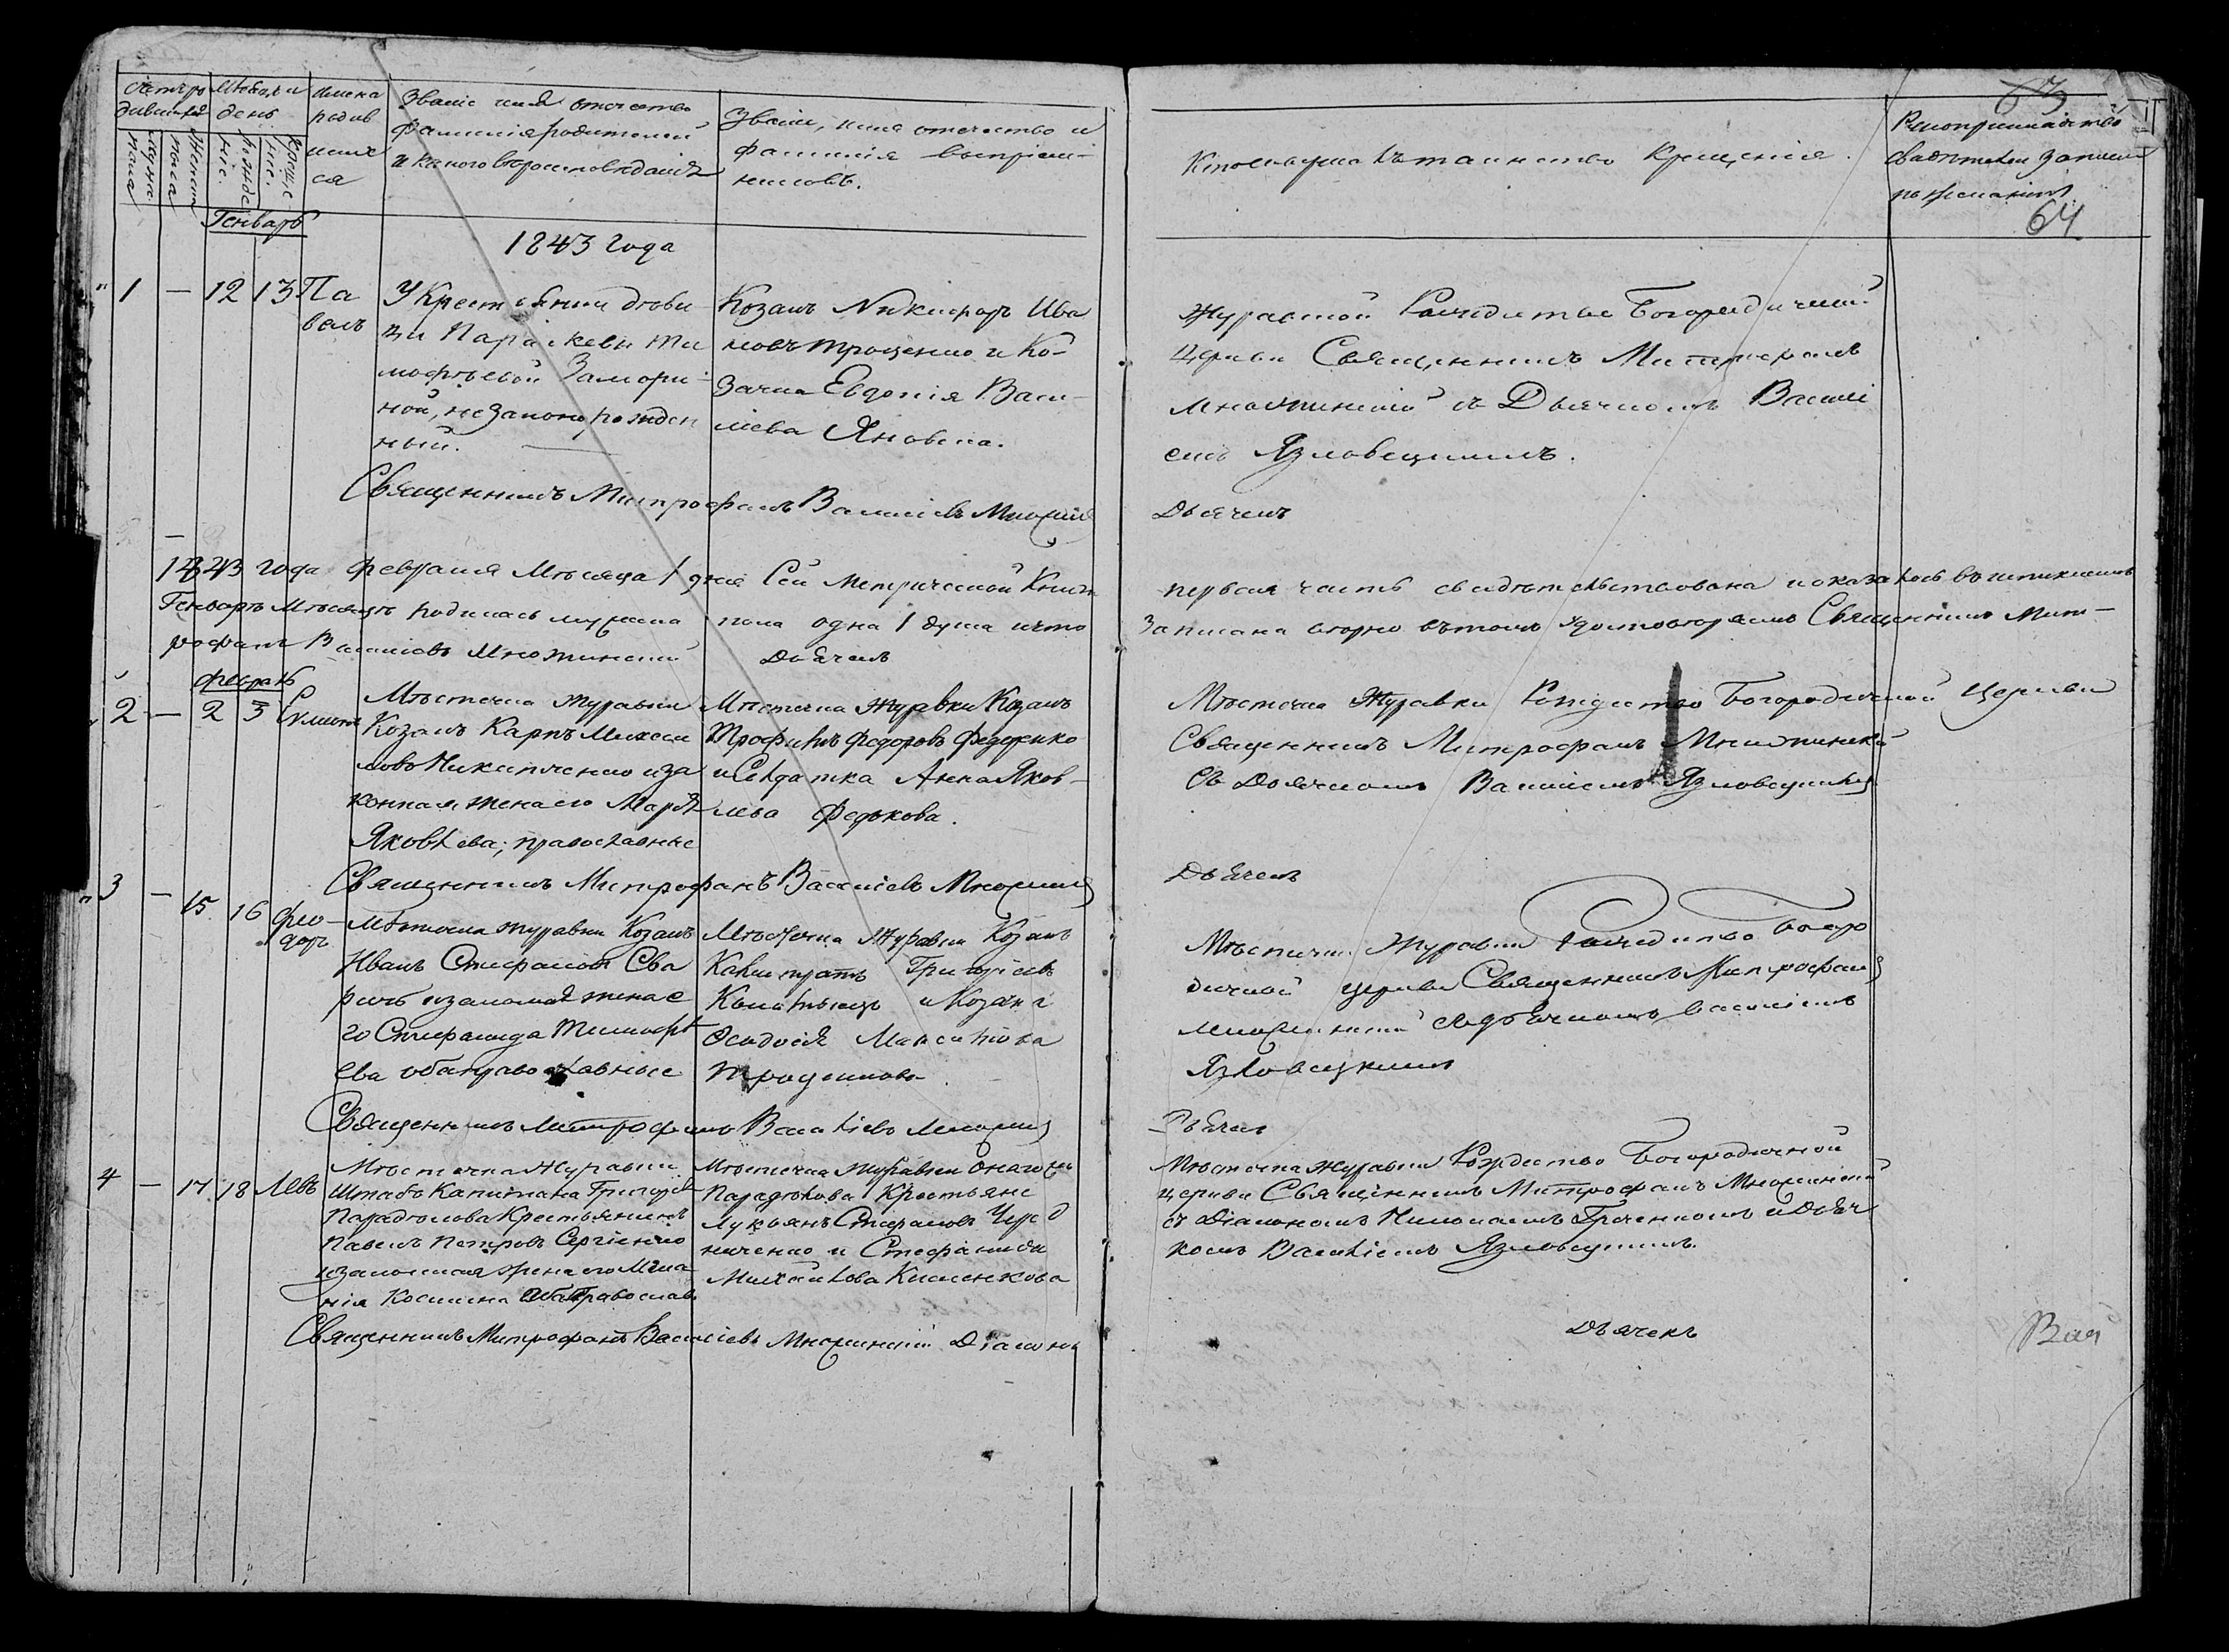 63
64
Счетъ ро
дившихся
мужеска
пола
женска
Мѣсяцъ и
день
рожде
ніе.
Креще
ніе.
имена
родив
шихс
ся
Званіе имя отчество
фамилія родителей
и какого вѣроисповѣданія
Званіе, имя отчество и
фамилія воспріем-
никовъ.
Кто совершалъ таинство Крещенія.
Рукоприкладство
свидѣтелей записи
по желанію
Генварь
1843 года
1 — 12 13 Па
велъ
У Крестьянки дѣви
ци Параскевы Ти
мофѣевой
ной, незаконнорожден
ный.
Козакъ Никифоръ Ива
новъ Троценко и Ко-
зачка Евдокія Васи-
лієва Яновска.
Журавской Рождество Богородичной
Церкви Священникъ Митрофанъ
Множинскій съ Дьячкомъ Василі
емъ Язловецкимъ.
Священникъ Митрофанъ Василіевъ Множинскій
Дьячекъ
1843 года февраля Мѣсяца 1 дня Сей Метрической Книги
первая часть свидѣтельствована и оказалось въ
Генварѣ Мѣсяцѣ родилась мужеска пола одна 1 душа и что
записана вѣрно въ томъ удостовѣряемъ Священникъ Мит-
рофанъ Василіевъ Множинскій Дьячекъ
февраль
2 — 2 3
Мѣстечка Журавки
Козакъ Карпъ Михаи
ловъ и за
конная жена его Марѳа
Яковлева; православные
Мѣстечка Журавки Козакъ
Трофимъ Федоровъ Федоренко
и Солдатка Анна Яков-
лева Федькова.
Мѣстечка Журавки Рождество Богородичной Церкви
Священникъ Митрофанъ Множинскій
Съ Дьячкомъ Василіемъ Язловецкимъ
Священникъ Митрофанъ Василіевъ Множинскій
Дьячекъ
3 — 15 16 Фео-
доръ
Мѣстечка Журавки Козакъ
Иванъ Стефановъ Сва
ричъ и законная жена е
го Стефанида Тимофѣ
ева оба православные
Мѣстечка Журавки Козакъ
Калистратъ Григоріевъ
и Козачка
Ѳеодосія
Троценкова
Мѣстечка Журавки Рождество Богоро
дичной Церкви Священникъ Митрофанъ
Множинскій съ Дьячкомъ Василіемъ
Язловецкимъ
Священникъ Митрофанъ Василіевъ Множинскій
Дьячекъ
4 — 17 18 Левъ
Мѣстечка Журавки
Штабъ Капитана Григорія
Парадѣлова Крестьянинъ
Павелъ Петровъ Сергіенко
и законная жена его Мела
нія Косьмина оба Православн
Мѣстечка Журавки онаго же
Парадѣлова Крестьяне
Лукьянъ Стефановъ Черед
ниченко и Стефанида
Михайлова
Мѣстечка Журавки Рождество Богородичной
церкви Священникъ Митрофанъ Множинскій
съ Діакономъ Николаемъ Гречениомъ и Дьяч
комъ Василіемъ Язловецкимъ.
Священникъ Митрофанъ Василіевъ Множинскій Діаконъ
Дьячекъ